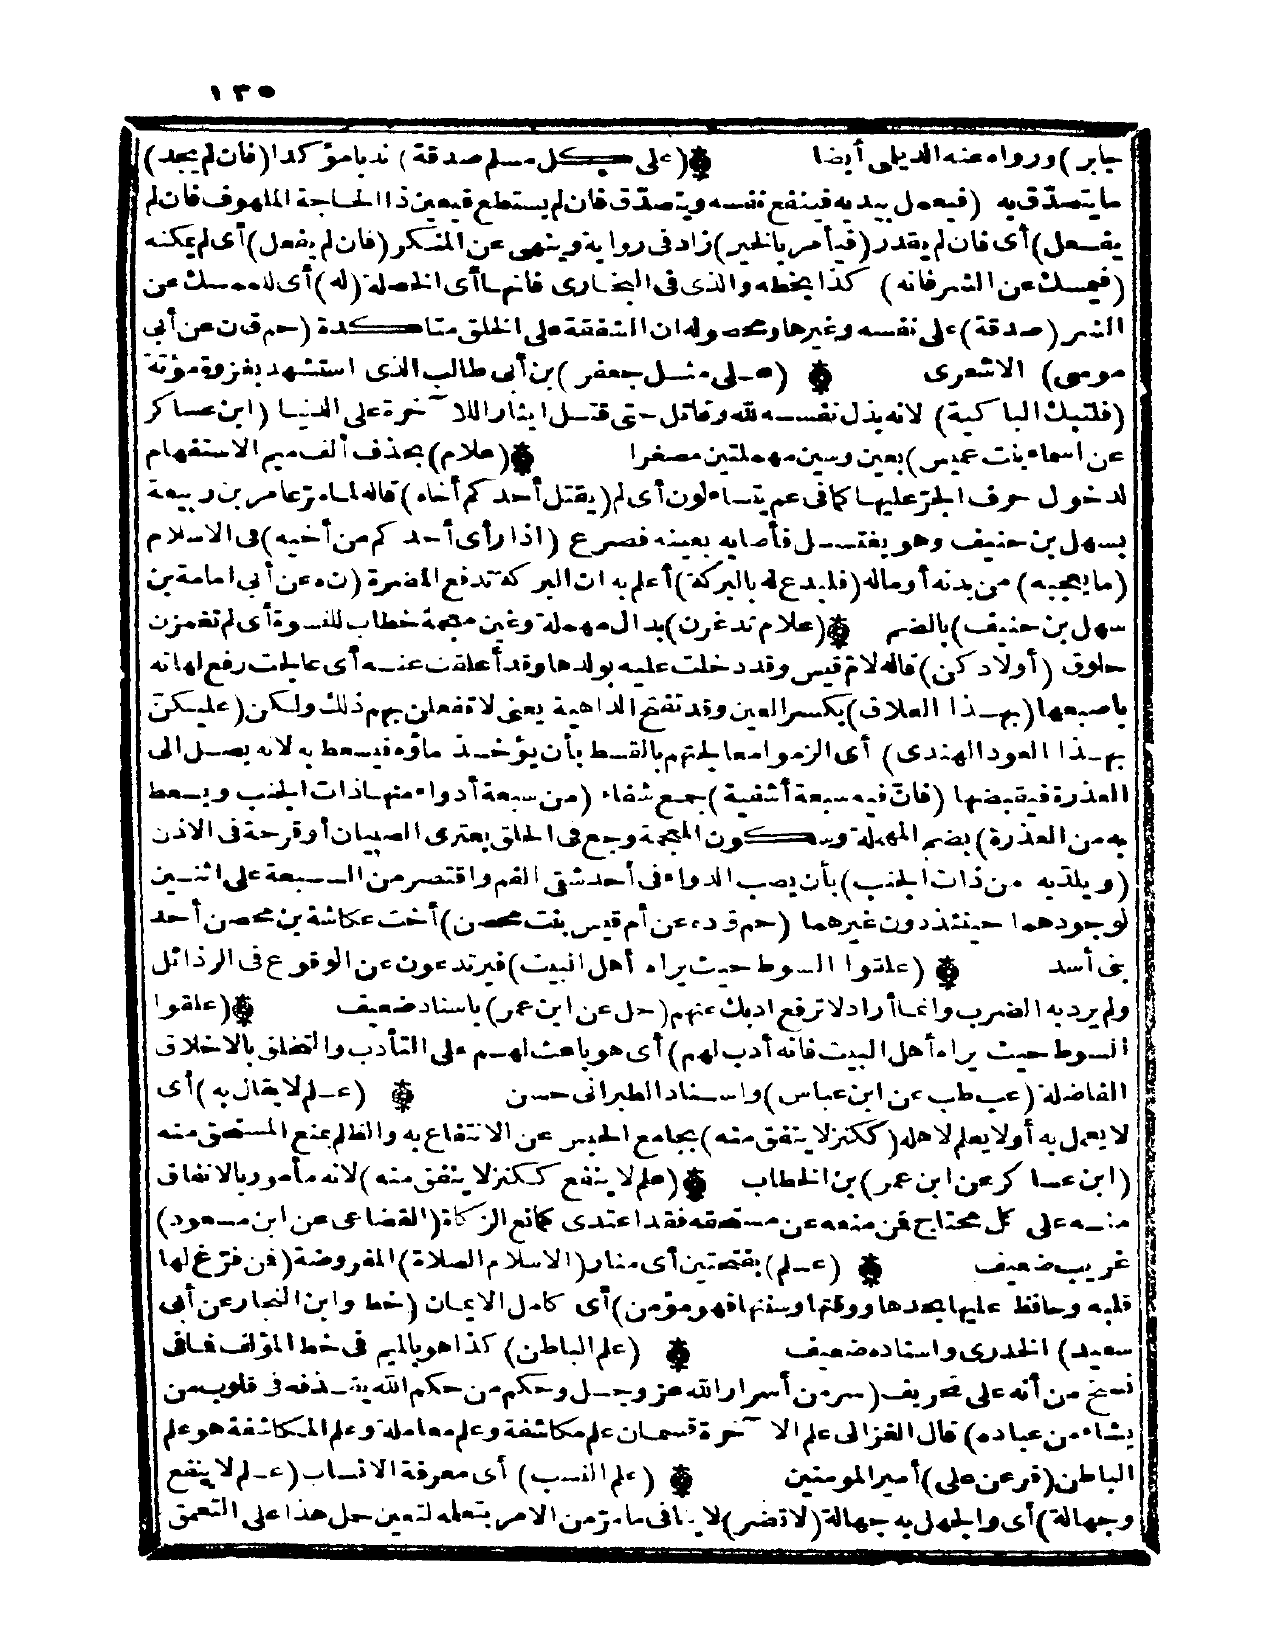 ١٣٥
جابر) ورواه عنه الديلمى أيضا (على كل مسلم صدقة) ندبا مؤكدا (فان لم يجد)
ما يتصدّق به (فيعمل بيديه فينفع نفسه ويتصدّق فان لم يستطع فيعين ذا الحاجة الملهوف فان لم
يفعل) أى فان لم يقدر (فيأمر بالخير) زاد فى رواية وينهى عن المنكر (فان لم يفعل) أى لم يمكنه
(فيمسك عن الشر فانه) كذا بخطه والذى فى البخارى فانها أى الخصلة (له) أى للممسك عن
الشر (صدقة) على نفسه وغيرها ومحصوله ان الشفقة على الخلق متأكدة (حم ق ن عن أبى
موسى) الاشعرى (على مثل جعفر) بن أبى طالب الذى استشهد بغزوة مؤتة
(فلتبك الباكية) لانه بذل نفسه لله وقاتل حتى قتل ايثارا للآخرة على الدنيا (ابن عساكر
عن اسماء بنت عميس) بعين وسين مهملتين مصغرا (علام) بحذف ألف ميم الاستفهام
لدخول حرف الجرّ عليها كما فى عم يتساءلون أى لم (يقتل أحدكم أخاه) قاله لما مرّ عامر بن ربيعة
بسهل بن حنيف وهو يغتسل فأصابه بعينه فصرع (اذا رأى أحدكم من أخيه) فى الاسلام
(ما يعجبه) من بدنه أو ماله (فليدع له بالبركة) أعلم به ان البركة تدفع المضرة (ن ه عن أبى امامة بن
سهل بن حنيف) بالضم (علام تدغرن) بدال مهملة وغين معجمة خطاب للنسوة أى لم تغمزن
حلوق (أولادكن) قاله لام قيس وقد دخلت عليه بولدها وقد أعلقت عنه أى عالجت رفع لهاته
باصبعها (بهذا العلاق) بكسر العين وقد تفتح الداهية يعنى لا تفعلن بهم ذلك ولكن (عليكنّ
بهذا العود الهندى) أى الزموا معالجتهم بالقسط بأن يؤخذ ماؤه فيسعط به لانه يصل الى
العذرة فيقبضها (فانّ فيه سبعة أشفية) جمع شفاء (من سبعة أدواء منها ذات الجنب ويسعط
به من العذرة) بضم المهملة وسكون المعجمة وجع فى الحلق يعترى الصبيان أو قرحة فى الاذن
(ويلدّ به من ذات الجنب) بأن يصب الدواء فى أحد شقى الفم واقتصر من السبعة على اثنين
لوجودهما حينئذ دون غيرهما (حم ق د ه عن أم قيس بنت محصن) أخت عكاشة بن محصن أحد
بنى أسد (علقوا السوط حيث يراه أهل البيت) فيرتدعون عن الوقوع فى الرذائل
ولم يرد به الضرب وانما أراد لا ترفع ادبك عنهم (حل عن ابن عمر) باسناد ضعيف (علقوا
السوط حيث يراه أهل البيت فانه أدب لهم) أى هو باعث لهم على التأدب والتخلق بالاخلاق
الفاضلة (عب طب عن ابن عباس) واسناد الطبرانى حسن (علم لا يقال به) أى
لا يعمل به أو لا يعلم لاهله (ككنز لا ينفق منه) بجامع الحبس عن الانتفاع به والظلم بمنع المستحق منه
(ابن عساكر عن ابن عمر) بن الخطاب (علم لا ينفع ككنز لا ينفق منه) لانه مأمور بالانفاق
منه على كل محتاج فمن منعه عن مستحقه فقد اعتدى كمانع الزكاة (القضاعى عن ابن مسعود)
غريب ضعيف (علم) بفتحتين أى منار (الاسلام الصلاة) المفروضة (فمن فرّغ لها
قلبه وحافظ عليها بحدها ووقتها وسننها فهو مؤمن) أى كامل الايمان (خط وابن النجار عن أبى
سعيد) الخدرى واسناده ضعيف (علم الباطن) كذا هو بالميم فى خط المؤلف فما فى
نسخ من أنه على تحريف (سر من أسرار الله عز وجل وحكم من حكم الله يقذفه فى قلوب من
يشاء من عباده) قال الغزالى علم الآخرة قسمان علم مكاشفة وعلم معاملة وعلم المكاشفة هو علم
الباطن (فر عن على) أمير المومنين (علم النسب) أى معرفة الانساب (علم لا ينفع
وجهالة) أى والجهل به جهالة (لا تضر) لا ينافى ما مرّ من الامر بتعلمه لتعين حمل هذا على التعمق